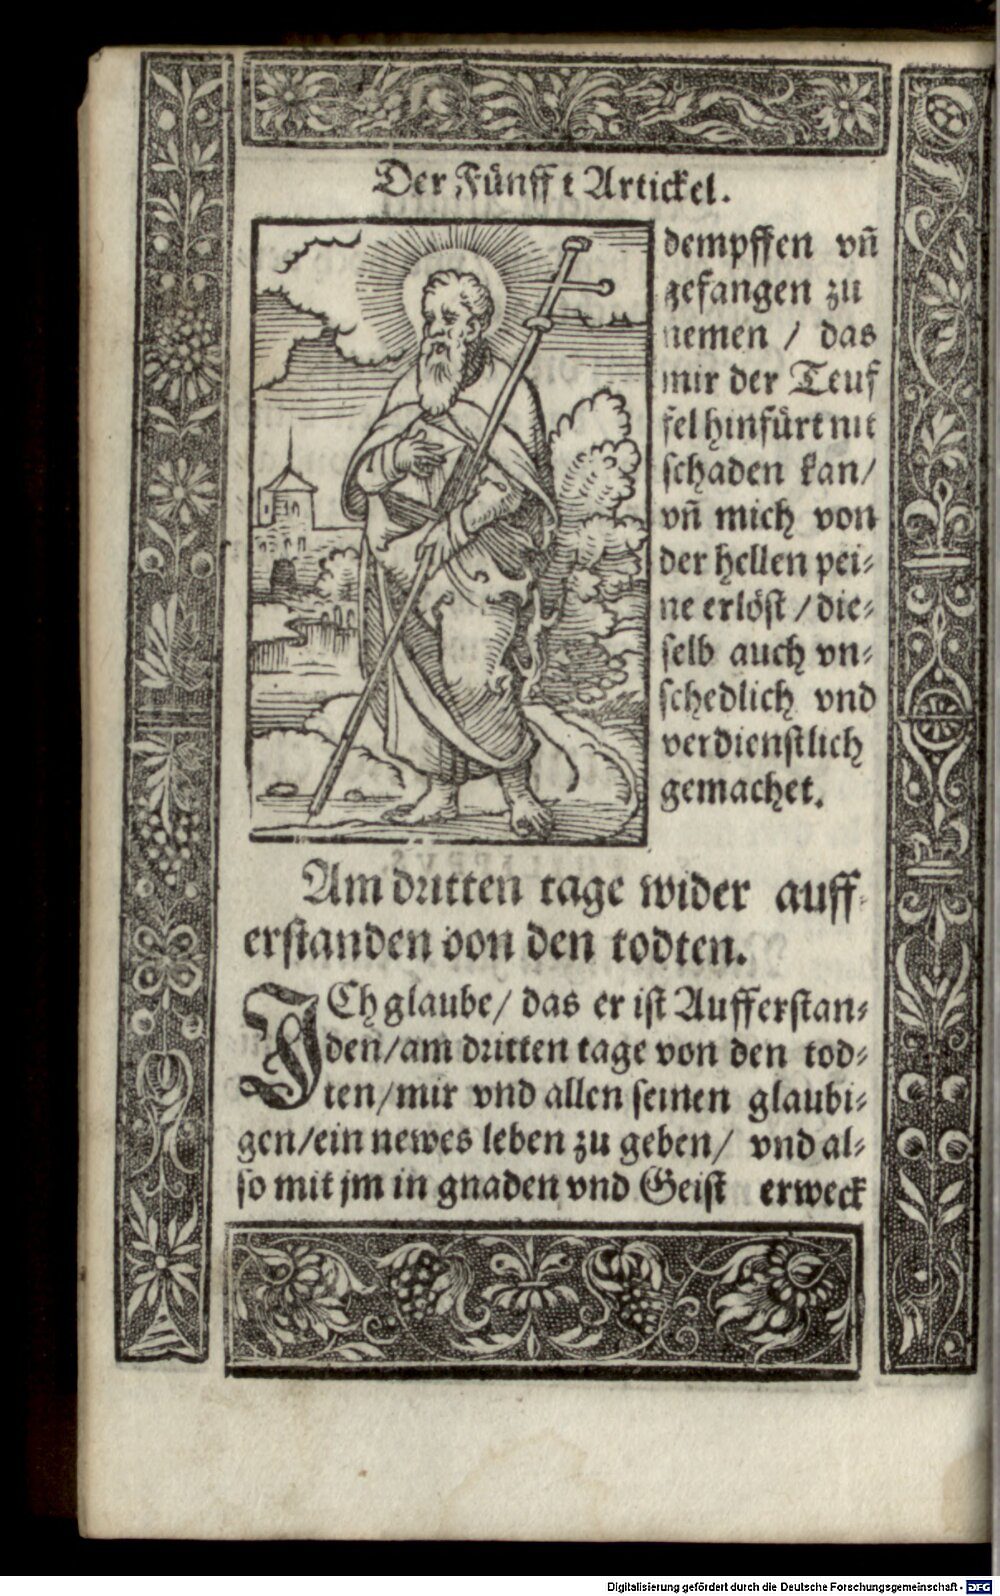 Der Fünff t Artickel.
dempffen vn̄
gefangen zu
nemen / das
mir der Teuf
fel hinfürt nit
schaden kan/
vn̄ mich von
der hellen pei⸗
ne erlöst / die⸗
selb auch vn⸗
schedlich vnd
verdienstlich
gemachet.
Am dritten tage wider auff⸗
erstanden von den todten.
ICh glaube/ das er ist Aufferstan⸗
den/am dritten tage von den tod⸗
ten/mir vnd allen seinen glaubi⸗
gen/ein newes leben zu geben/ vnd al⸗
so mit jm in gnaden vnd Geist erweck
Digitalisierung gefördert durch die Deutsche Forschungsgemeinschaft - DFG